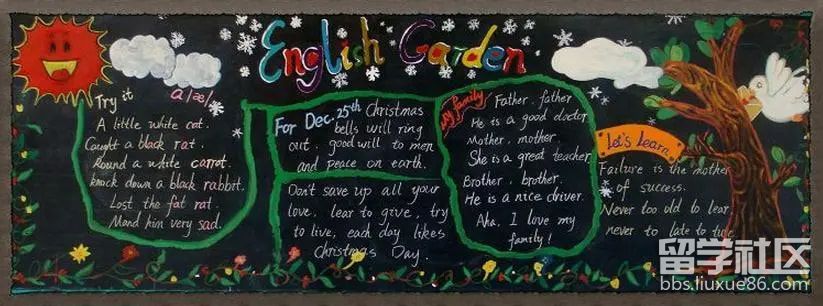 English Garden
Try it
a /æ/
A little white cat.
Caught a black rat.
Round a white carrot.
knock down a black rabbit.
Lost the fat rat.
Mand him very sad.
For Dec. 25th Christmas
bells will ring
out. good will to men
and peace on earth.
Don't save up all your
love, lear to give, try
to live, each day likes
Christmas Day.
My family
Father, father
He is a good doctor
Mother, mother.
She is a great teacher
Brother, brother.
He is a nice driver.
Aha, I love my
family!
Let's Learn
Failure is the mother
of success.
Never too old to lear
never to late to
留学社区
bbs.liuxue86.com